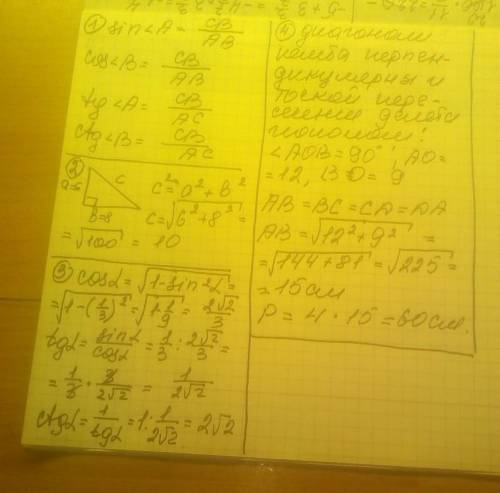 ① sin∠A = CB/AB
cos∠B = CB/AB
tg∠A = CB/AC
ctg∠B = CB/AC
②
a=6
c
b=8
c² = a² + b²
c = √(6² + 8²) =
= √100 = 10
③ cosα = √(1 - sin²α) =
= √(1 - (1/3)²) = √(1 - 1/9) = 2√2/3
tgα = sinα/cosα = 1/3 : 2√2/3 =
= 1/3 · 3/2√2 = 1/2√2
ctgα = 1/tgα = 1 : 1/2√2 = 2√2
④ диагонали
ромба перпен-
дикулярны и
точкой пере-
сечения делятся
пополам!
∠AOB = 90°; AO =
= 12, BO = 9
AB = BC = CD = DA
AB = √(12² + 9²) =
= √(144 + 81) = √225 =
= 15 см
P = 4 · 15 = 60 см.